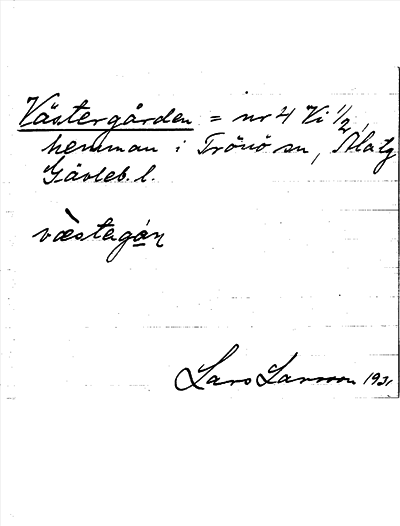 Västergården = nr 4 Vi 1/2
hemman i Trönö sn, Ala tg
Gävleb. l.
væ̀stagán
Lars Larsson 193